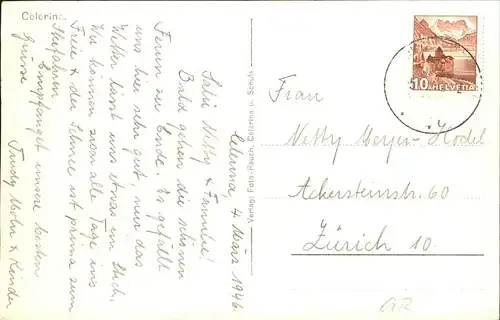 Celerina.
Celerina, 4. März 1946.
Salü Netty & Familie!
Bald gehen die schönen
Ferien zu Ende. Es gefällt
uns hier sehr gut, nur das
Wetter lässt uns etwas im Stich.
Wir können zwar alle Tage ins
Freie & der Schnee ist prima zum
Skifahren.
Empfanget unsere besten
Grüsse
Trudy & Kinder
Verlag: Foto-Rauch, Celerina u. Scuols
10 HELVETIA
Frau
Netty Meyer-Hodel
Ackersteinstr. 60
Zürich 10.
GR